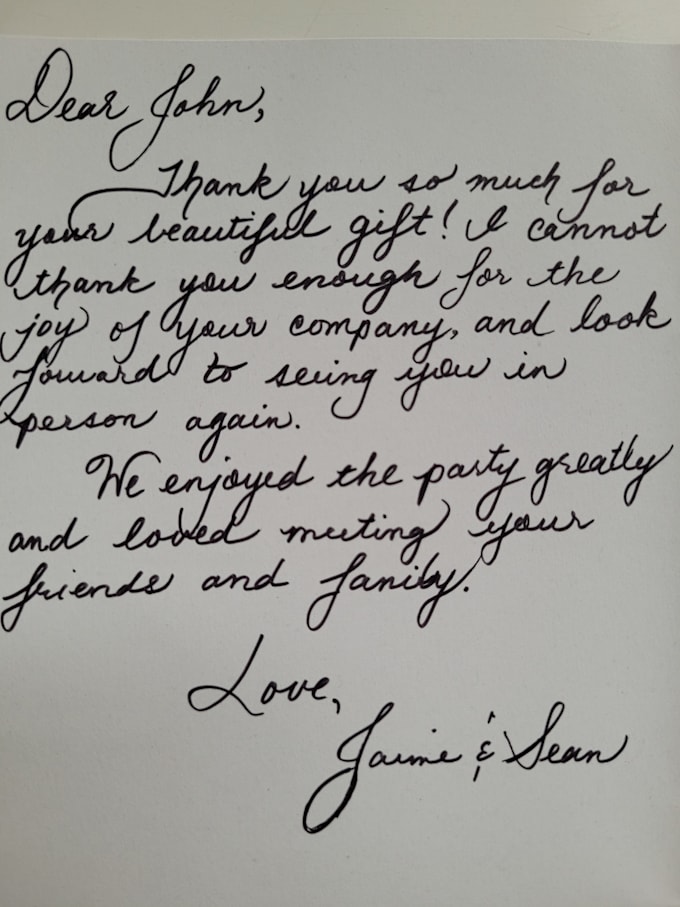 Dear John,
Thank you so much for
your beautiful gift! I cannot
thank you enough for the
joy of your company, and look
forward to seeing you in
person again.
We enjoyed the party greatly
and loved meeting your
friends and family.
Love,
Jaime & Sean